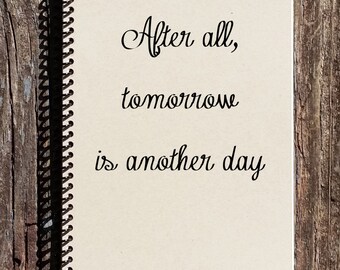 After all,
tomorrow
is another day